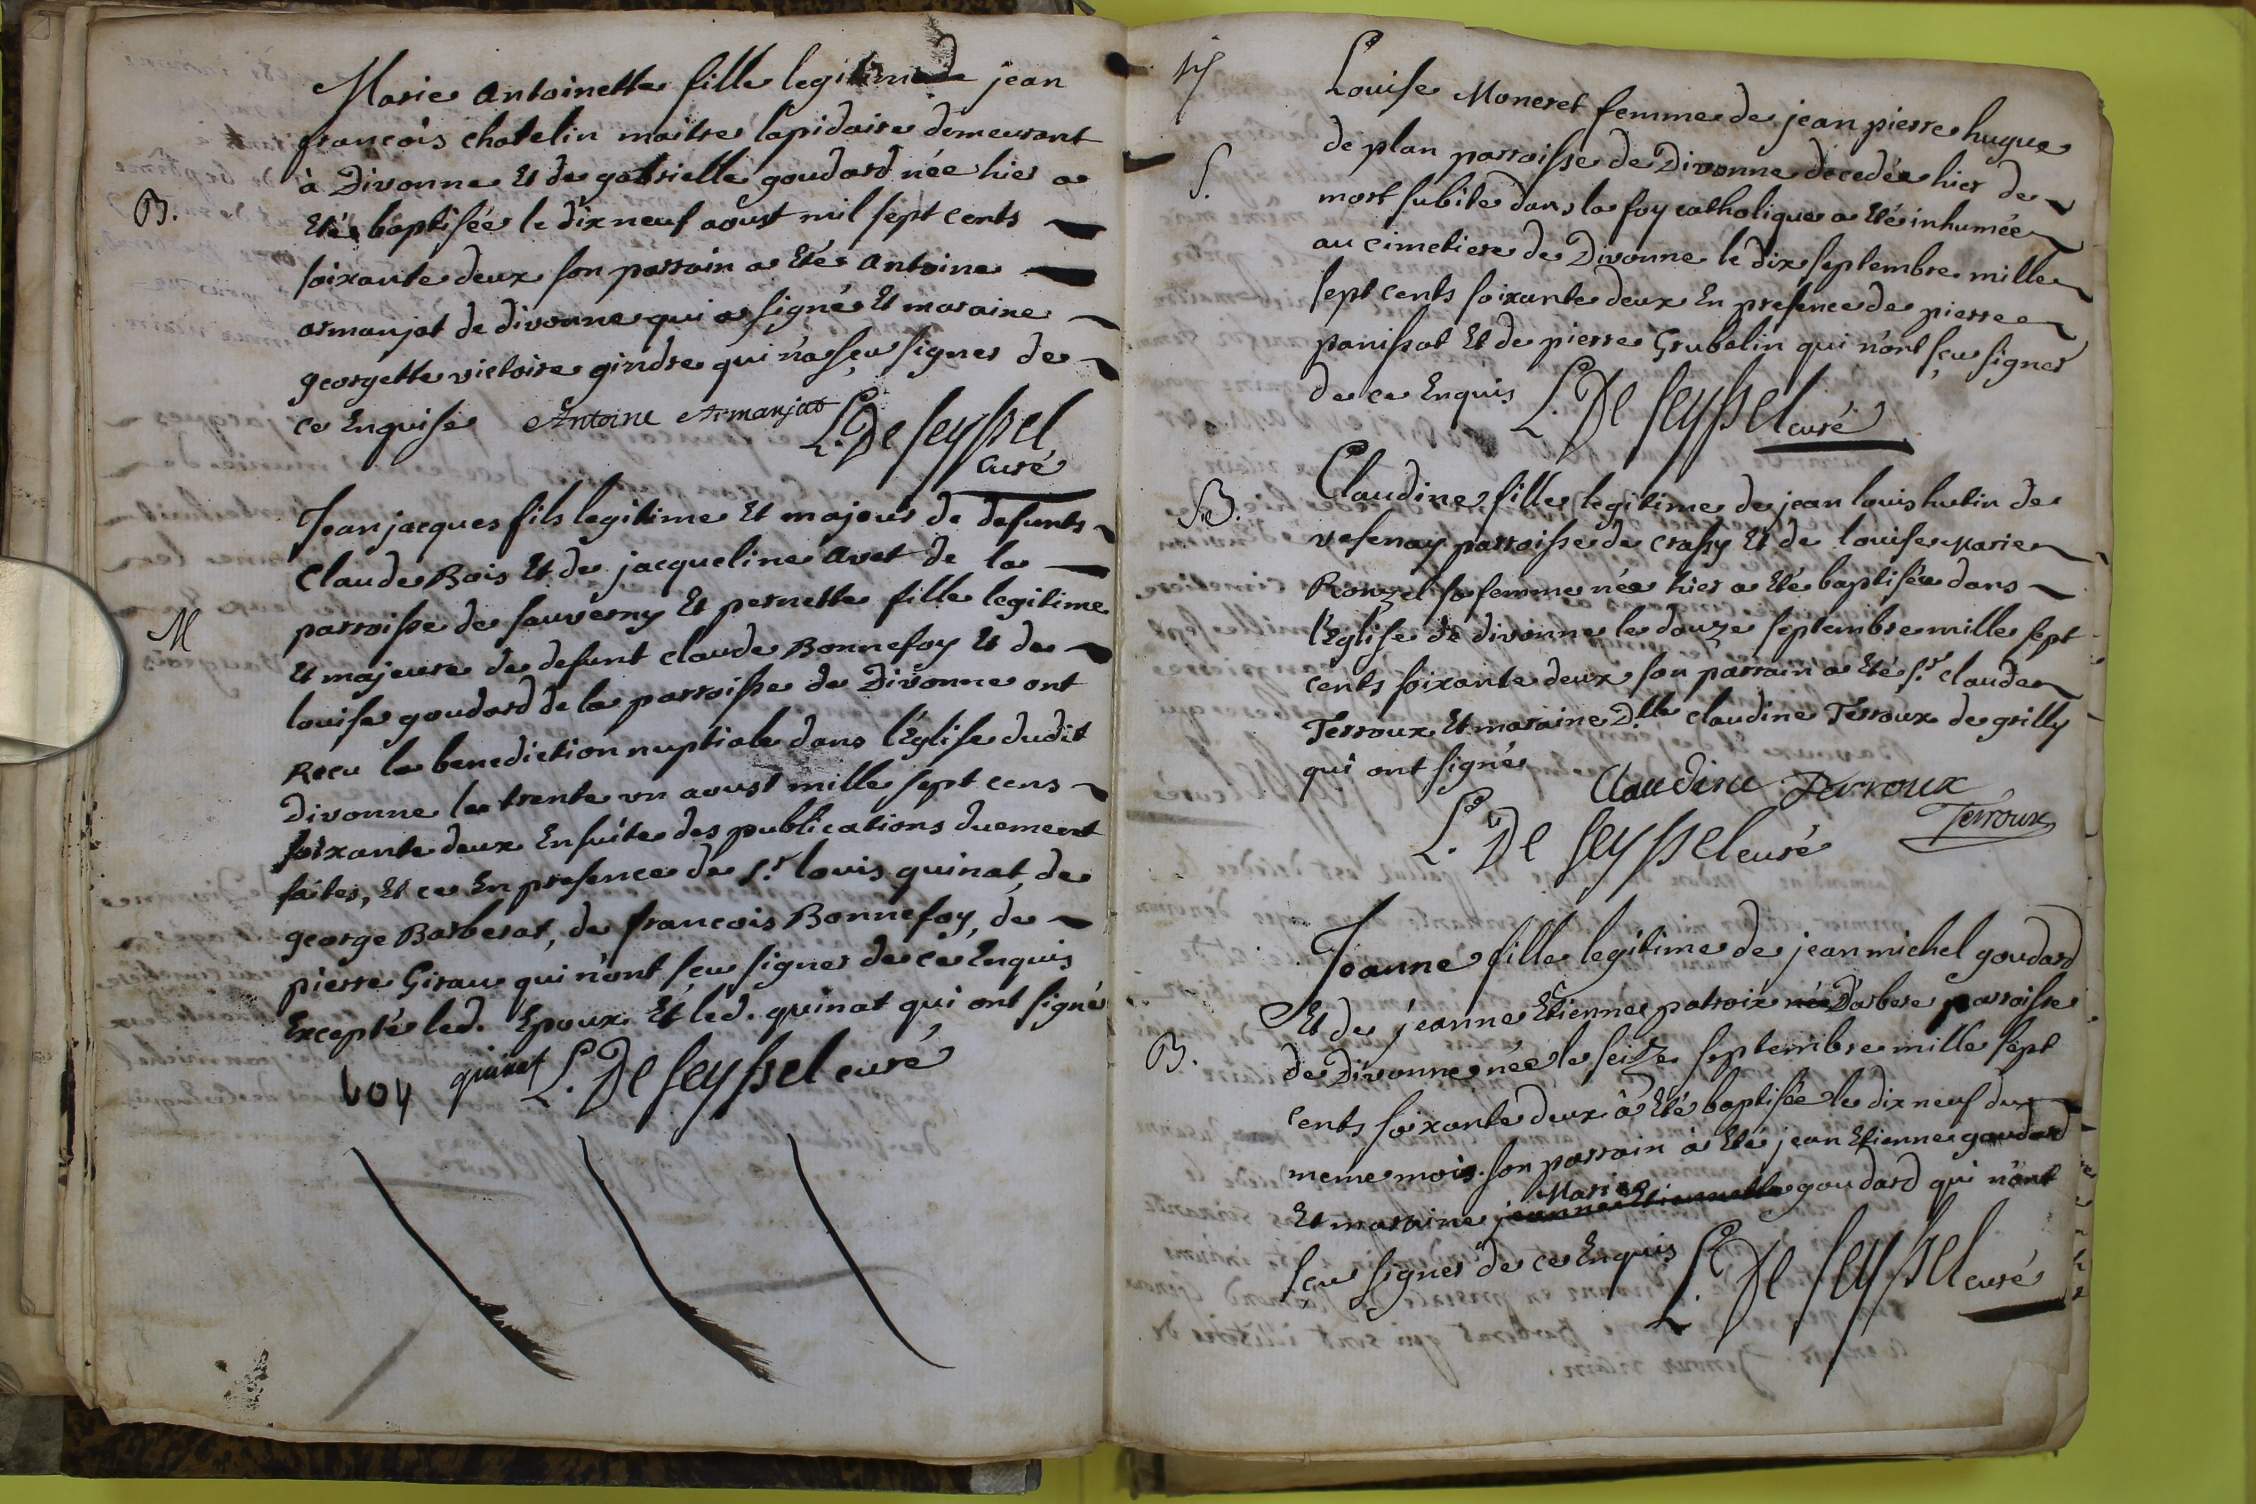 Marie Antoinette fille legitime de jean
françois chatelin maitre lapidaire demeurant
à Divonne Et de gabrielle goudard née hier a
B.
Eté baptisée le dix neuf aoust mil sept cents
soixante deux son parrain a Eté Antoine
armanjat de divonne qui a signé Et maraine
georgette victoire gindre qui n'a sçu signer de
ce Enquise Antoine Armanjat L. De Seyssel
curé
Jean jacques fils legitime Et majeur de defunts
Claude Bois Et de jacqueline Avet de la
parroisse de Sauverny Et pernette fille legitime
M
Et majeure de defunt claude Bonnefoy Et de
louise goudard de la parroisse de Divonne ont
Recu la benediction nuptiale dans l'Eglise dudit
divonne le trente un aoust mille sept cens
soixante deux Ensuite des publications duement
faites, Et ce En presence de Sr. louis quinat, de
george Barberat, de françois Bonnefoy, de
pierre Girau qui n'ont sçu signer de ce Enquis
Excepté led. Epoux Et led. quinat qui ont signé
boy quinat L. De Seyssel curé
Louise Moneret femme de jean pierre hugue
de plan parroisse de Divonne decedée hier de
S.
mort subite dans la foy catholique a Eté inhumée
au cimetiere de Divonne le dix septembre mille
sept cents soixante deux En presence de pierre
panissat Et de pierre Grubelin qui n'ont sçu signer
de ce Enquis L. De Seyssel curé
B.
Claudine fille legitime de jean louis hutin de
vesenay parroisse de crassy Et de louise Marie
Rouzel sa femme née hier a Eté baptisée dans
l'Eglise de divonne le douze septembre mille sept
cents soixante deux son parrain a Eté Sr. claude
Terroux Et maraine D.lle claudine Terroux de grilly
qui ont signé Claudine Terroux
Terroux
L. De Seyssel curé
Jeanne fille legitime de jean michel goudard
Et de jeanne Etienne patroix née D'arbere parroisse
B.
de Divonne née le seize septembre mille sept
cents soixante deux à Eté baptisée le dix neuf du
meme mois. son parrain à Eté jean Etienne goudard
Marie
Et maraine jeanne Etiennette goudard qui n'ont
sçu signer de ce Enquis L. De Seyssel curé